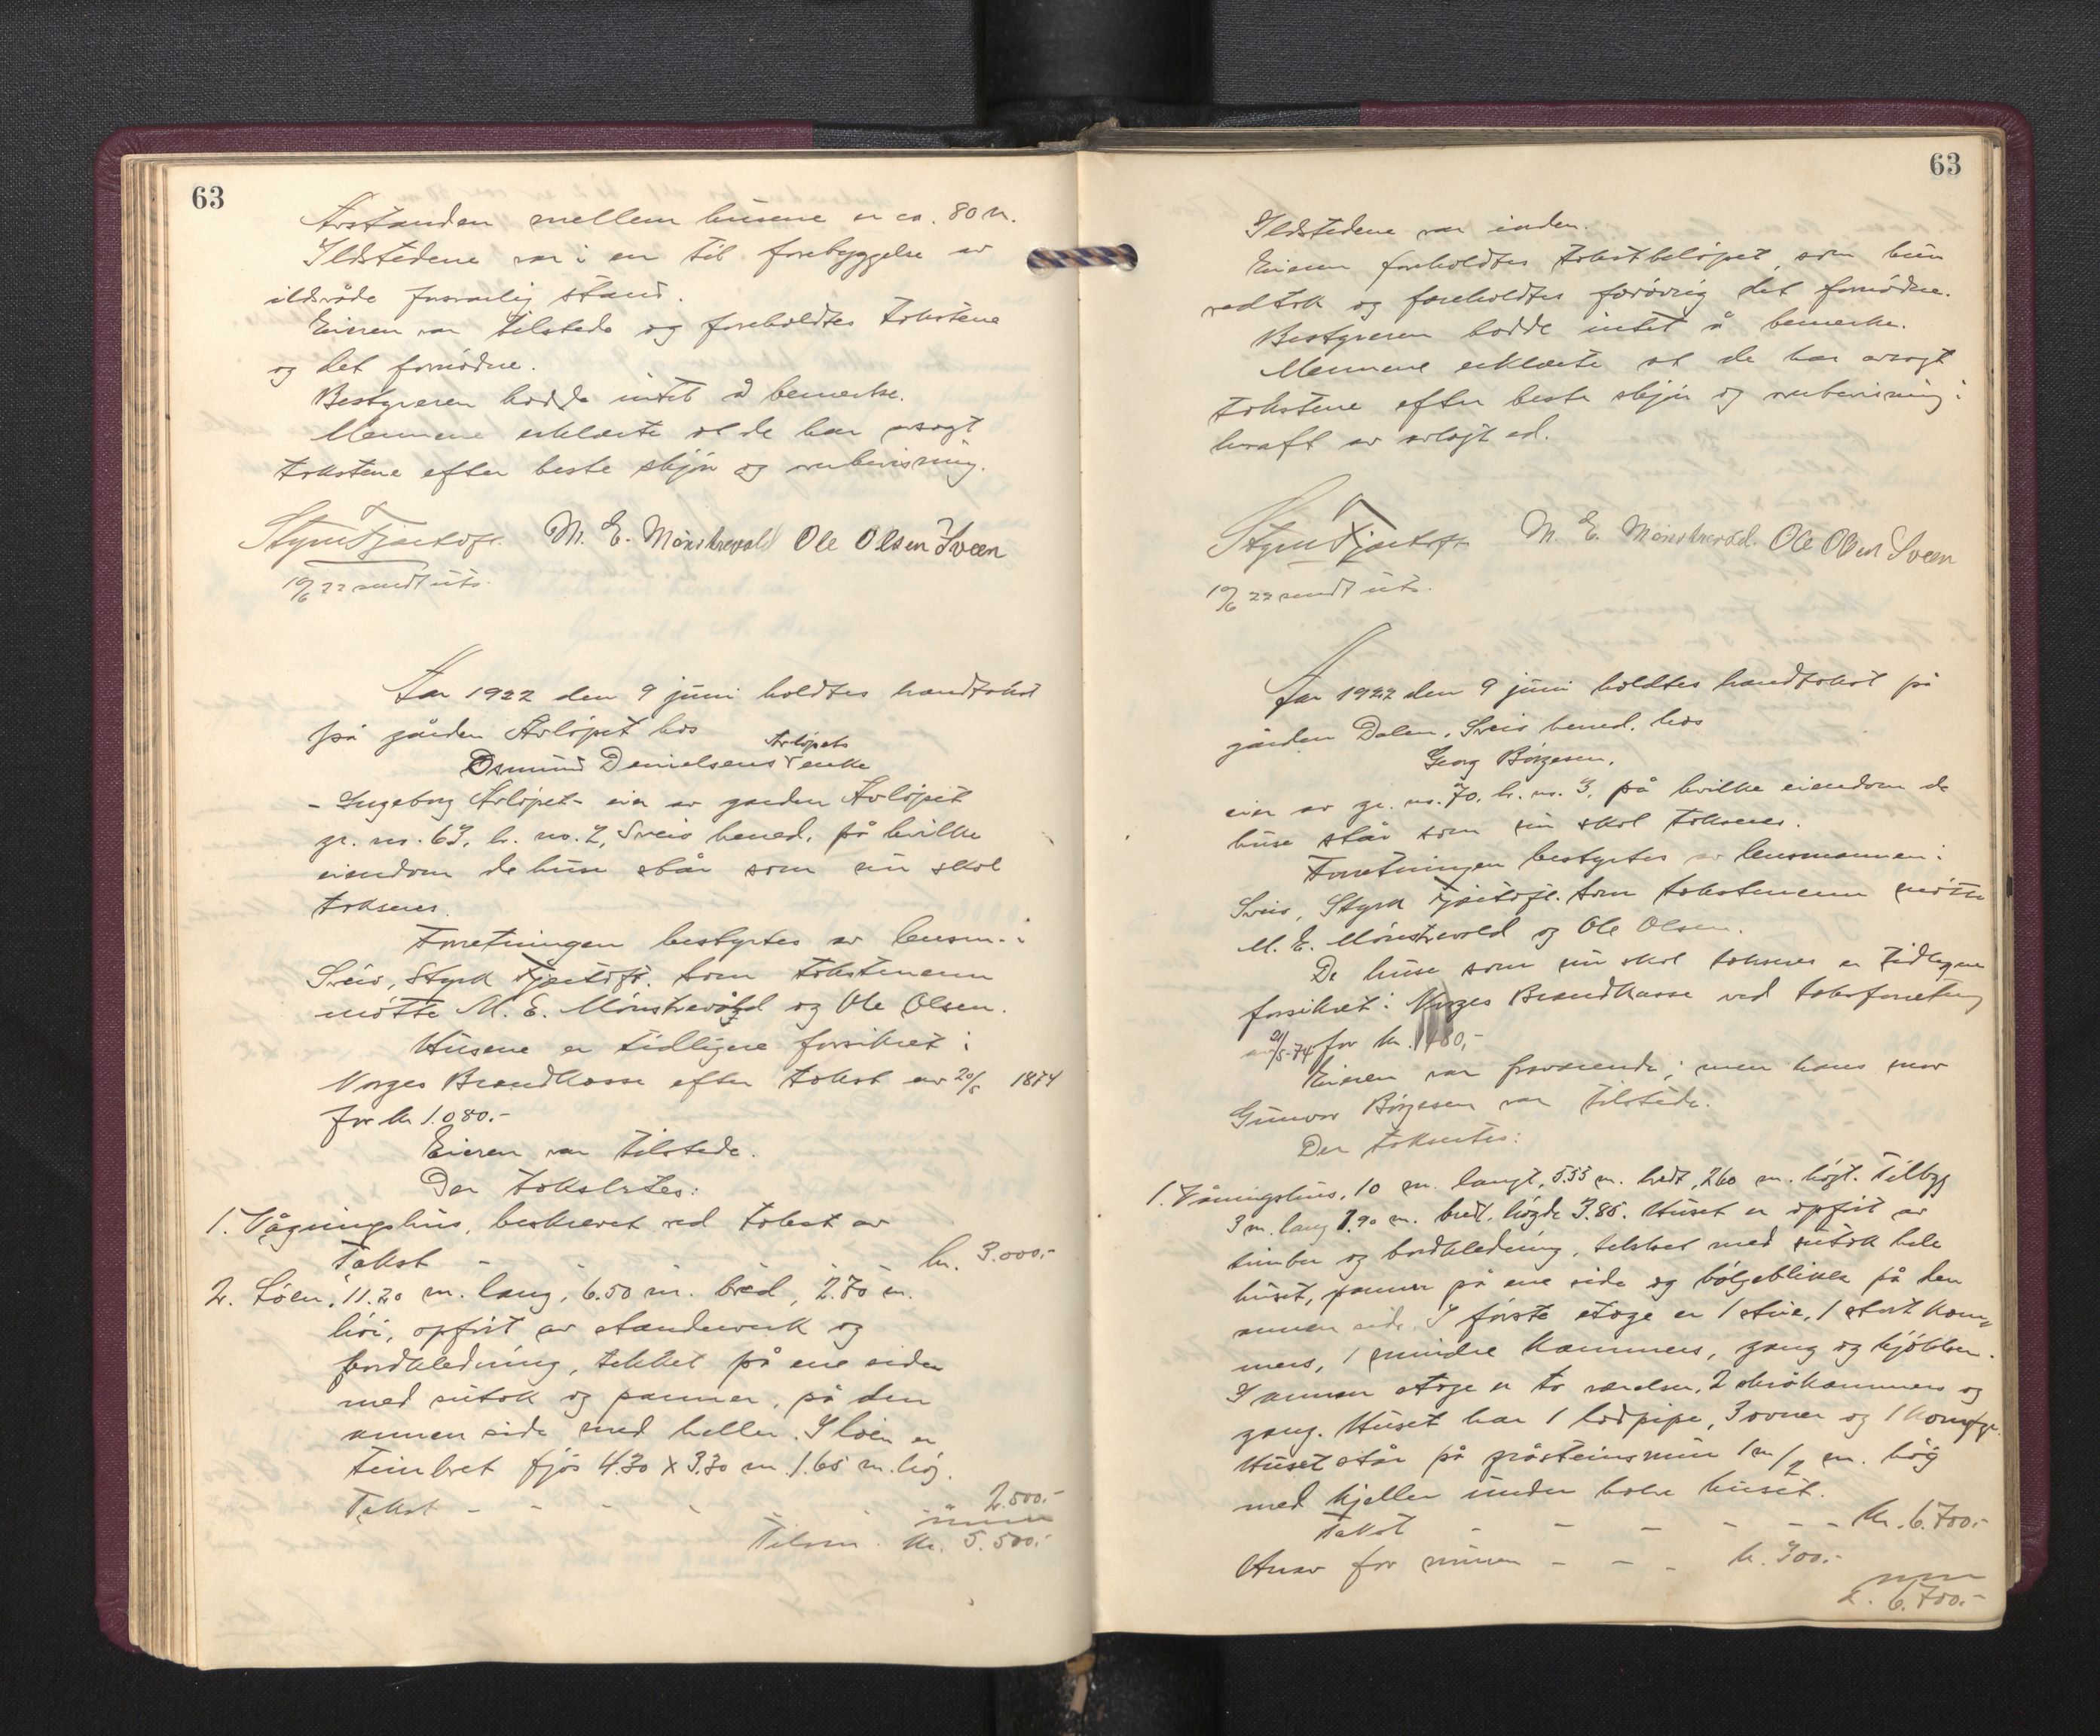 63
Avstanden mellem husene er ca. 80 m.
Ildstedene var i en til forebyggelse av
ildsvåde forsvarlig stand.
Eieren var tilstede og foreholdtes takstene
og det fornødne.
Bestyreren hadde intet å bemerke.
Mennene erklærte at de har avsagt
takstene efter beste skjøn og overbevisning.
Styrk Fjærtoft M. E. Mønstrevold Ole Olsen Sveen
10/6 22 sendt uts.
Aar 1922 den 9 juni holdtes brandtakst
på gården Avløpet hos
Avløpets
Osmund Danielsens enke
- Ingeborg Avløpet - eier av garden Avløpet
gr. nr. 63, br. no. 2, Sveio herred, på hvilke
eiendom de huse står som nu skal
takseres.
Forretningen bestyrtes av lensm. i
Sveio, Styrk Fjærtoft. Som takstmenn
møtte M. E. Mønstrevold og Ole Olsen.
Husene er tidligere forsikret i
Norges Brandkasse efter takst av 20/5 1874
for kr 1.080.-
Eieren var tilstede.
Der takstertes:
1. Våningshus, beskrevet ved takst av
Takst - - - kr. 3.000.-
2. Løen, 11.20 m. lang, 6.50 m. bred, 2.70 m.
høi, opført av standerverk og
bordkledning, tekket på ene siden
med sutak og panner, på den
annen side med heller. I løen er
timbret fjøs 4.30 x 3.30 m 1.65 m. høg.
Takst - - - - - 2.500.-
Tilsm. kr. 5.500.-
63
Ildstedene var i orden.
Eieren foreholdtes takstbeløpet, som hun
vedtok og foreholdtes forøvrig det fornødne.
Bestyreren hadde intet å bemerke.
Mennene erklærte at de har avsagt
takstene efter beste skjøn og overbevisning i
kraft av avlagt ed.
Styrk Fjærtoft M. E. Mønstrevold. Ole Olsen Sveen
10/6 22 sendt uts.
Aar 1922 den 9 juni holdtes brandtakst på
gården Dalen, Sveio herred, hos
Georg Børgesen,
eier av gr. no. 70, br. no. 3, på hvilke eiendom de
huse står som nu skal takseres.
Forretningen bestyrtes av lensmannen i
Sveio, Styrk Fjærtoft. Som takstmenn møtte
M. E. Mønstrevold og Ole Olsen.
De huse som nu skal takseres er tidligere
forsikret i Norges Brandkasse ved taksforretning
av 21/5-74 for kr. 80,-
Eieren var fraværende; men hans mor
Gunvor Børgesen var tilstede.
Der takstertes:
1. Våningshus, 10 m. langt, 5.55 m. bredt, 2.60 m. høgt. Tilbygg
3 m. lang 1.90 m. bredt, høgde 3.85. Huset er opført av
timber og bordkledning, tekket med sutak hele
huset, panner på ene side og bølgeblikk på den
annen side. I første etage er 1 stue, 1 stort kam-
mers, 1 mindre kammers, gang og kjøkken.
I annen etage er to værelser, 2 skråkammers og
gang. Huset har 1 lodpipe, 3 ovner og 1 komfyr.
Huset står på gråsteinsmur 1 m/2 m. høg
med kjeller under hele huset.
Takst - - - - - - kr. 6.700.-
Herav for muren - - - kr. 300.-
6.700.-